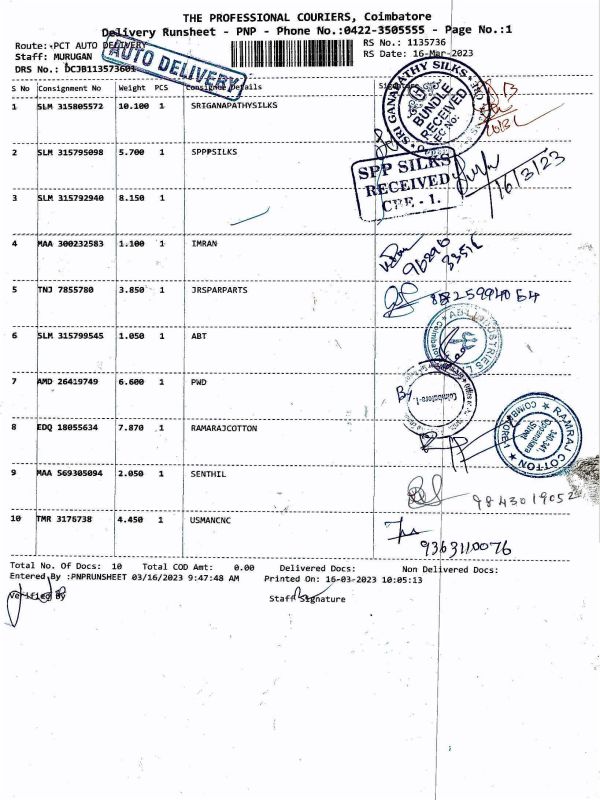 THE PROFESSIONAL COURIERS, Coimbatore
Delivery Runsheet - PNP - Phone No.:0422-3505555 - Page No.:1
Route: PCT AUTO DELIVERY
RS No.: 1135736
Staff: MURUGAN
RS Date: 16-Mar-2023
DRS No.: DCJB113573601
AUTO DELIVERY
S No Consignment No Weight PCS Consignee Details Signature
1 SLM 315805572 10.100 1 SRIGANAPATHYSILKS
SRI GANAPATHY SILKS
BUNDLE
RECEIVED
2 SLM 315795098 5.700 1 SPPPSILKS
SPP SILKS
RECEIVED
CBE - 1.
16/3/23
3 SLM 315792940 8.150 1
4 MAA 300232583 1.100 1 IMRAN
5 TNJ 7855780 3.850 1 JRSPARPARTS
6 SLM 315799545 1.050 1 ABT
ABT INDUSTRIES
7 AMD 26419749 6.600 1 PWD
Coimbatore-1
8 EDQ 18055634 7.870 1 RAMARAJCOTTON
RAMRAJ COTTON
COIMBATORE-1
340-341
Oppanakara
Street
9 MAA 569305094 2.050 1 SENTHIL
9843019052
10 TMR 3176738 4.450 1 USMANCNC
9363110076
Total No. Of Docs: 10 Total COD Amt: 0.00 Delivered Docs: Non Delivered Docs:
Entered By :PNPRUNSHEET 03/16/2023 9:47:48 AM Printed On: 16-03-2023 10:05:13
Verified By Staff Signature